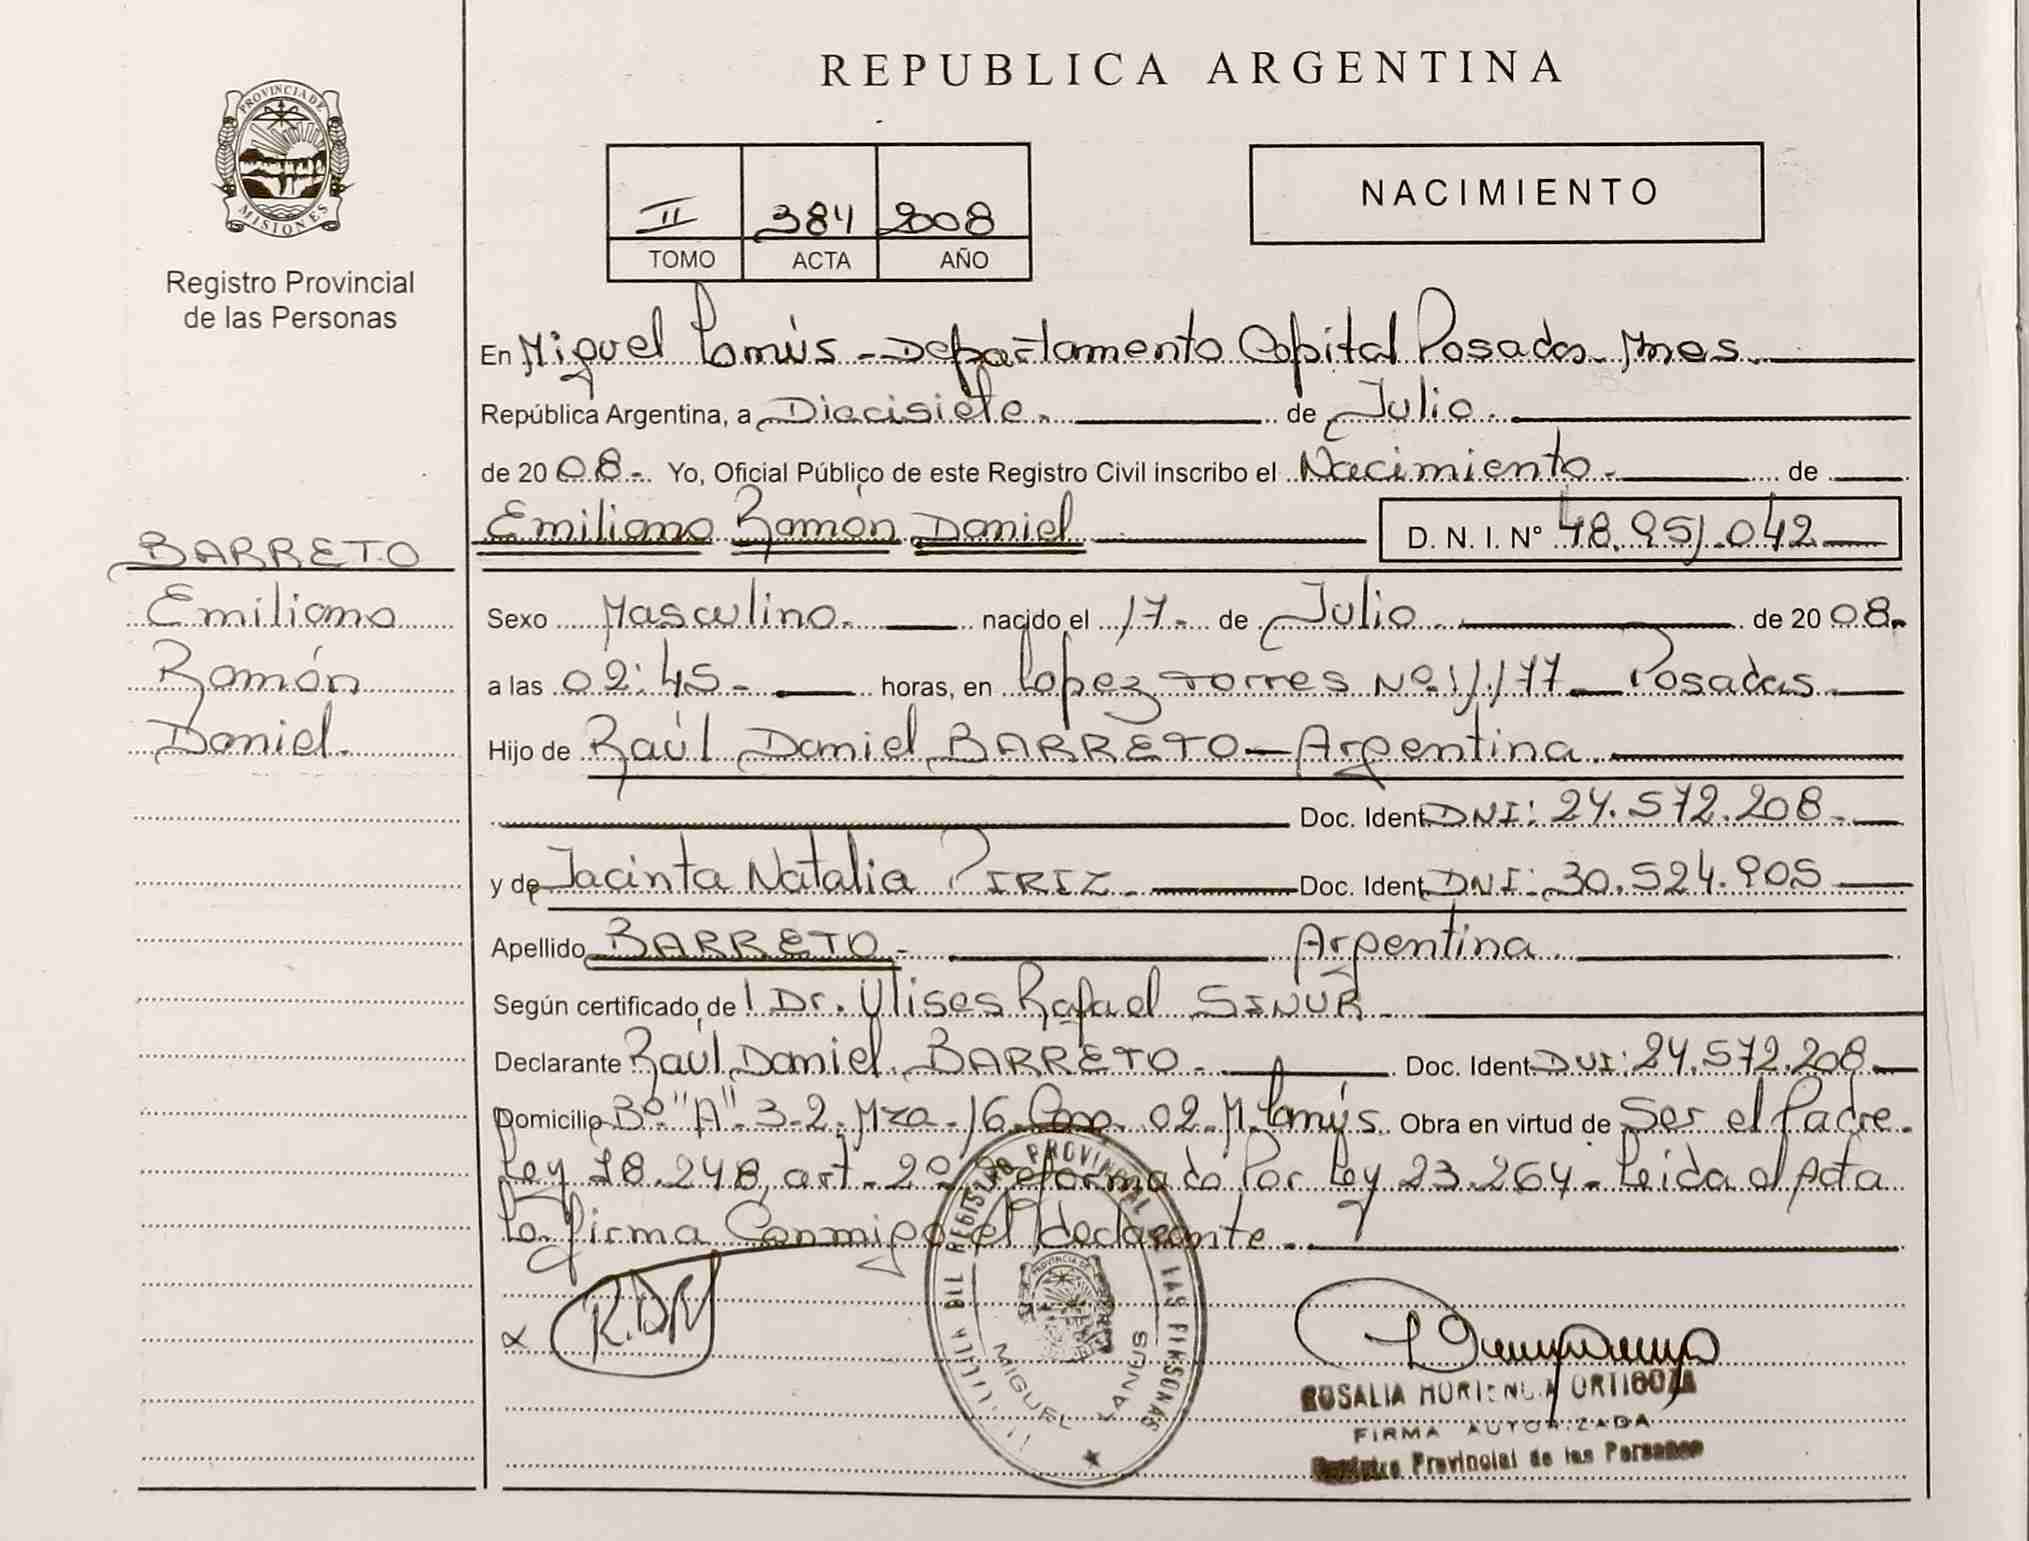 REPUBLICA ARGENTINA
PROVINCIA DE
MISIONES
Registro Provincial
de las Personas
II 384 2008
TOMO ACTA AÑO
NACIMIENTO
En Miguel Lanús - Departamento Capital Posadas Mnes.
República Argentina, a Diecisiete. de Julio.
de 2008.- Yo, Oficial Público de este Registro Civil inscribo el Nacimiento. de
Emiliano Ramón Daniel D. N. I. N° 48.951.042
BARRETO
Emiliano
Ramón
Daniel.
Sexo Masculino. nacido el 17- de Julio. de 2008.
a las 02:45- horas, en López Torres Nº 1/177 Posadas.
Hijo de Raúl Daniel BARRETO - Argentina.
Doc. Ident. DNI: 24.572.208.
y de Jacinta Natalia PIRIZ. Doc. Ident. DNI: 30.524.905
Apellido BARRETO. Argentina.
Según certificado de l Dr. Ulises Rafael SINUR.
Declarante Raúl Daniel BARRETO. Doc. Ident. DNI: 24.572.208
Domicilio Bº "A" 3-2. Mza. 16 Casa 02. M. Lanús. Obra en virtud de Ser el Padre.
Ley 18.248, art. 2º Reformado Por Ley 23.264. Leida el Acta
La firma Conmigo el declarante.
R.D.B
REGISTRO PROVINCIAL DE LAS PERSONAS
MIGUEL LANUS
ROSALIA HORTENCIA ORTIGOZA
FIRMA AUTORIZADA
Registro Provincial de las Personas